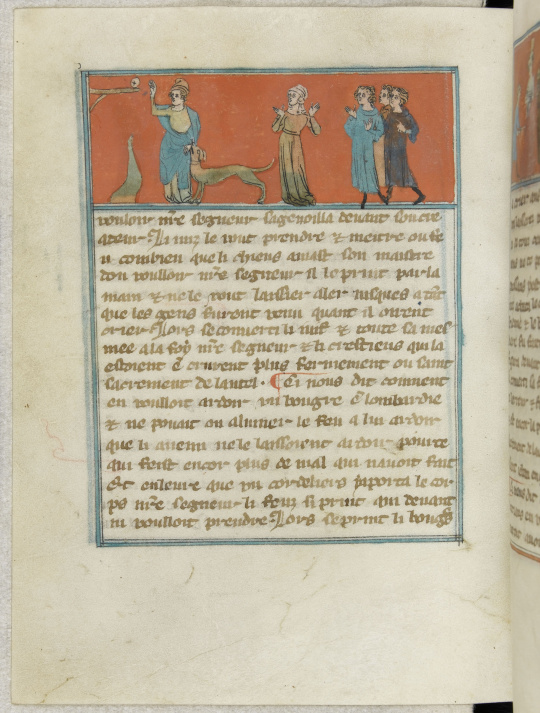 vouloir nr̃e segneur sagenoilla devant son cre
ateur. Li iuiz le vout prendre & meitre ou fe
u combien que li chiens amast son maistre
dou voulloir nr̃e segneur il le print par la
main & ne le vout laissier aler iusques a tāt
que les gens furent venu quant il ouirent
crier. Lors se converti li iuis & toute sa mes
niee a la foy nr̃e segneur & li crestiens qui la
estoient & crurent plus fermement ou saint
sacrement de lautel. Ci nous dit comment
en voulloit ardoir un bougre en lombardie
& ne pouait on alumer le feu a lui ardoir
que li anemi ne le laissoient ardoir pource
qui feist encor plus de mal qui navoit fait
Et enseure que un cordeliers aporta le cor
ps nr̃e segneur li feuz si print qui devant
ni voulloit prendre. Lors se print li bougr̃s